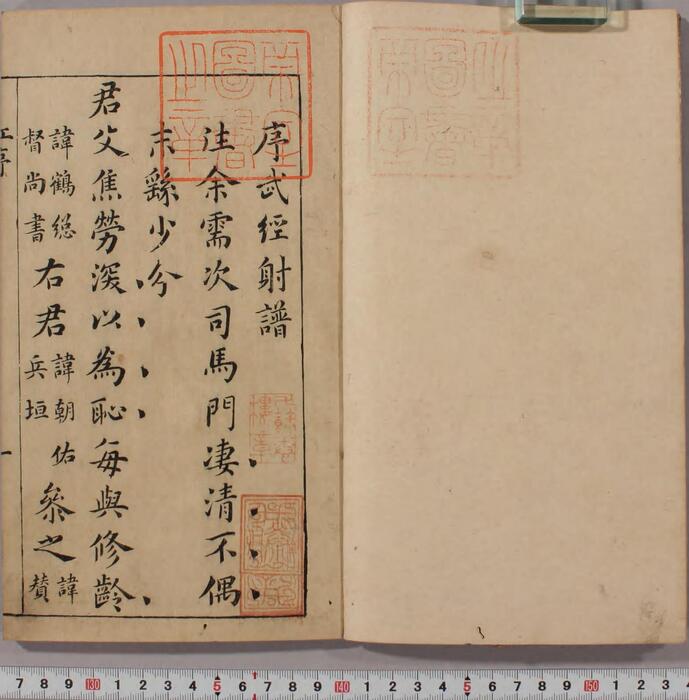 序武經射譜
往余需次司馬門淒清不偶
未繇少分
君父焦勞深以為恥每與修齡
諱鶴總
督尚書
右君
諱朝佑
兵垣
叅之
諱
贊
序
一
7 8 9 130 1 2 3 4 5 6 7 8 9 140 1 2 3 4 5 6 7 8 9 150 1 2 3